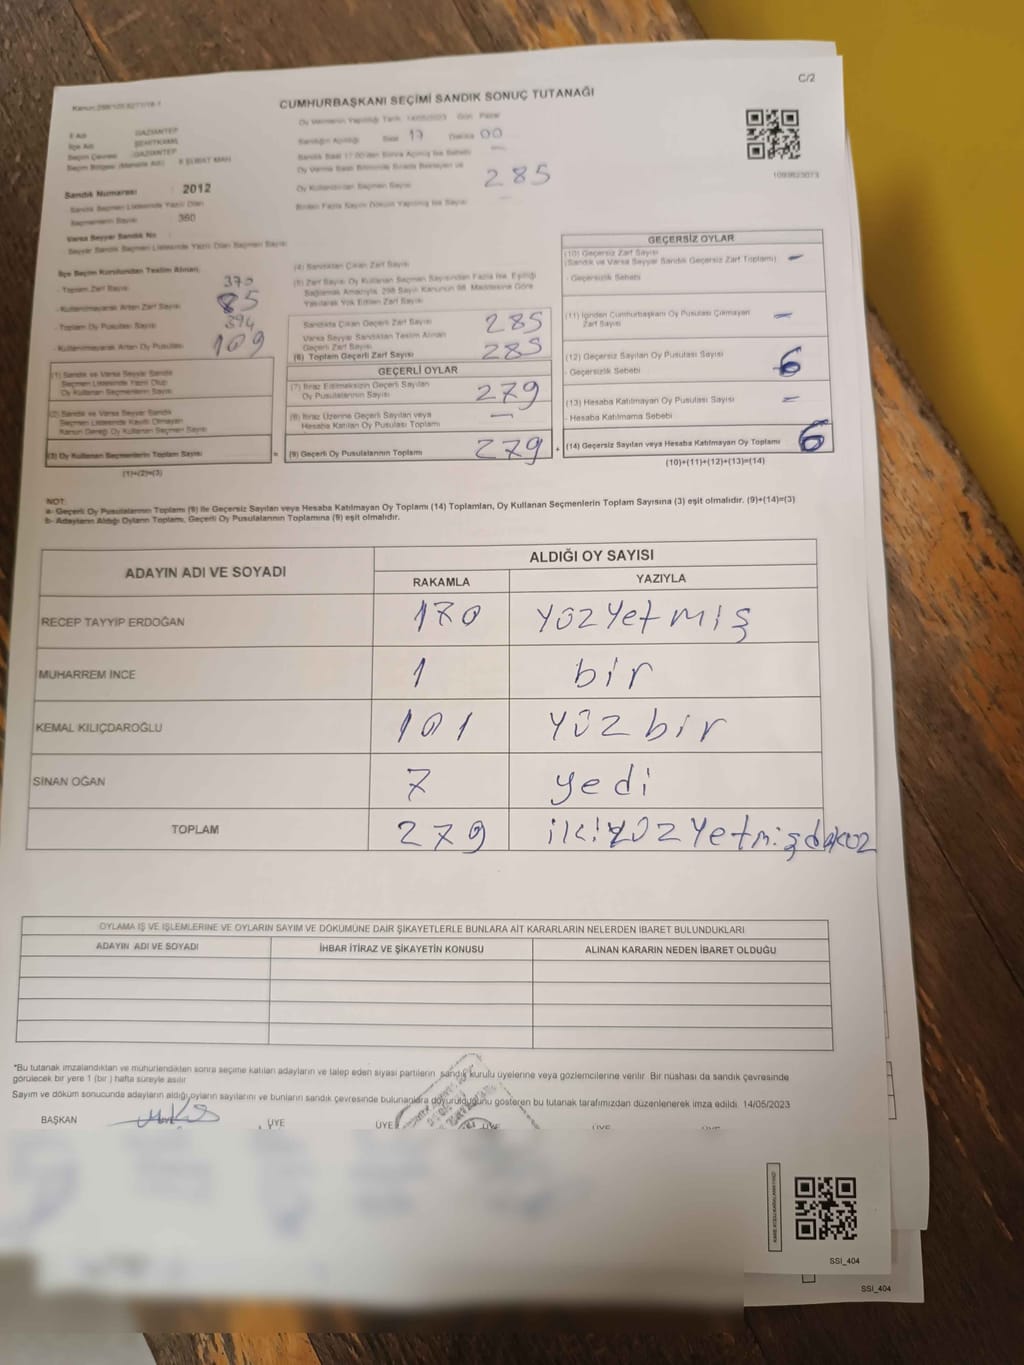 C/2
CUMHURBAŞKANI SEÇİMİ SANDIK SONUÇ TUTANAĞI
Oy Vermenin Yapıldığı Tarih 14/05/2023 Gün Pazar
İl Adı GAZİANTEP
İlçe Adı ŞEHİTKAMİL
Seçim Çevresi GAZİANTEP
Sandığın Açıldığı Saat 17 Dakika 00
Sandık Numarası : 2012
Oy Kullandırılan Seçmen Sayısı 285
Sandık Seçmen Listesinde Yazılı Olan
Seçmenlerin Sayısı 360
Varsa Seyyar Sandık No
Seyyar Sandık Seçmen Listesinde Yazılı Olan Seçmen Sayısı
İlçe Seçim Kurulundan Teslim Alınan;
- Toplam Zarf Sayısı 370
- Kullanılmayarak Artan Zarf Sayısı 85
- Toplam Oy Pusulası Sayısı 394
- Kullanılmayarak Artan Oy Pusulası 109
(1) Sandık ve Varsa Seyyar Sandık
Seçmen Listesinde Yazılı Olup
Oy Kullanan Seçmenlerin Sayısı
(2) Sandık ve Varsa Seyyar Sandık
Seçmen Listesinde Kayıtlı Olmayan
Kanun Gereği Oy Kullanan Seçmen Sayısı
(3) Oy Kullanan Seçmenlerin Toplam Sayısı
(1)+(2)=(3)
(4) Sandıktan Çıkan Zarf Sayısı
(5) Zarf Sayısı Oy Kullanan Seçmen Sayısından Fazla İse, Eşitliği
Sağlamak Amacıyla, 298 Sayılı Kanunun 98. Maddesine Göre
Yakılarak Yok Edilen Zarf Sayısı
Sandıkta Çıkan Geçerli Zarf Sayısı 285
Varsa Seyyar Sandıktan Teslim Alınan
Geçerli Zarf Sayısı
(6) Toplam Geçerli Zarf Sayısı 285
GEÇERLİ OYLAR
(7) İtiraz Edilmeksizin Geçerli Sayılan
Oy Pusulalarının Sayısı 279
(8) İtiraz Üzerine Geçerli Sayılan veya
Hesaba Katılan Oy Pusulası Toplamı —
(9) Geçerli Oy Pusulalarının Toplamı 279
GEÇERSİZ OYLAR
(10) Geçersiz Zarf Sayısı
(Sandık ve Varsa Seyyar Sandık Geçersiz Zarf Toplamı) —
- Geçersizlik Sebebi
(11) İçinden Cumhurbaşkanı Oy Pusulası Çıkmayan
Zarf Sayısı —
(12) Geçersiz Sayılan Oy Pusulası Sayısı 6
- Geçersizlik Sebebi
(13) Hesaba Katılmayan Oy Pusulası Sayısı —
- Hesaba Katılmama Sebebi
+ (14) Geçersiz Sayılan veya Hesaba Katılmayan Oy Toplamı 6
(10)+(11)+(12)+(13)=(14)
NOT:
a- Geçerli Oy Pusulalarının Toplamı (9) ile Geçersiz Sayılan veya Hesaba Katılmayan Oy Toplamı (14) Toplamları, Oy Kullanan Seçmenlerin Toplam Sayısına (3) eşit olmalıdır. (9)+(14)=(3)
b- Adayların Aldığı Oyların Toplamı, Geçerli Oy Pusulalarının Toplamına (9) eşit olmalıdır.
ADAYIN ADI VE SOYADI ALDIĞI OY SAYISI
RAKAMLA YAZIYLA
RECEP TAYYİP ERDOĞAN 170 yüzyetmiş
MUHARREM İNCE 1 bir
KEMAL KILIÇDAROĞLU 101 yüzbir
SİNAN OĞAN 7 yedi
TOPLAM 279 ikiyüzyetmişdokuz
OYLAMA İŞ VE İŞLEMLERİNE VE OYLARIN SAYIM VE DÖKÜMÜNE DAİR ŞİKAYETLERLE BUNLARA AİT KARARLARIN NELERDEN İBARET BULUNDUKLARI
ADAYIN ADI VE SOYADI İHBAR İTİRAZ VE ŞİKAYETİN KONUSU ALINAN KARARIN NEDEN İBARET OLDUĞU
*Bu tutanak imzalandıktan ve mühürlendikten sonra seçime katılan adayların ve talep eden siyasi partilerin sandık kurulu üyelerine veya gözlemcilerine verilir. Bir nüshası da sandık çevresinde
görülecek bir yere 1 (bir) hafta süreyle asılır.
Sayım ve döküm sonucunda adayların aldığı oyların sayılarını ve bunların sandık çevresinde bulunanlara duyurulduğunu gösteren bu tutanak tarafımızdan düzenlenerek imza edildi. 14/05/2023
BAŞKAN ÜYE ÜYE ÜYE ÜYE
SSI_404
SSI_404